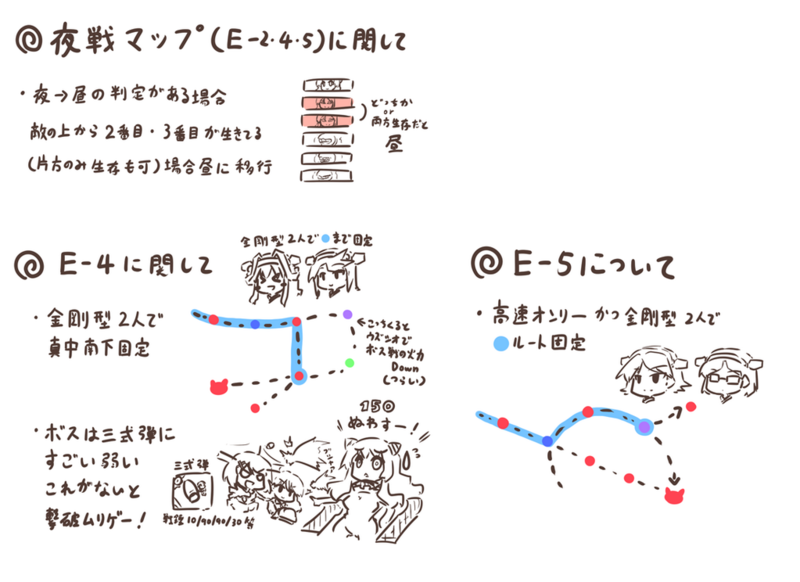 夜戦マップ(E-2・4・5)に関して
・夜→昼の判定がある場合
敵の上から2番目・3番目が生きてる
(片方のみ生存も可)場合昼に移行
どっちか
or
両方生存だと
昼
E-4に関して
金剛型2人で●まで固定
・金剛型2人で
真中南下固定
こっちくると
ウズシオで
ボス戦の火力
Down
(つらい)
・ボスは三式弾に
すごい弱い
これがないと
撃破ムリゲー!
三式弾
戦艦10/90/90/30
150
ぬわすー!
E-5について
・高速オンリーかつ金剛型2人で
●ルート固定